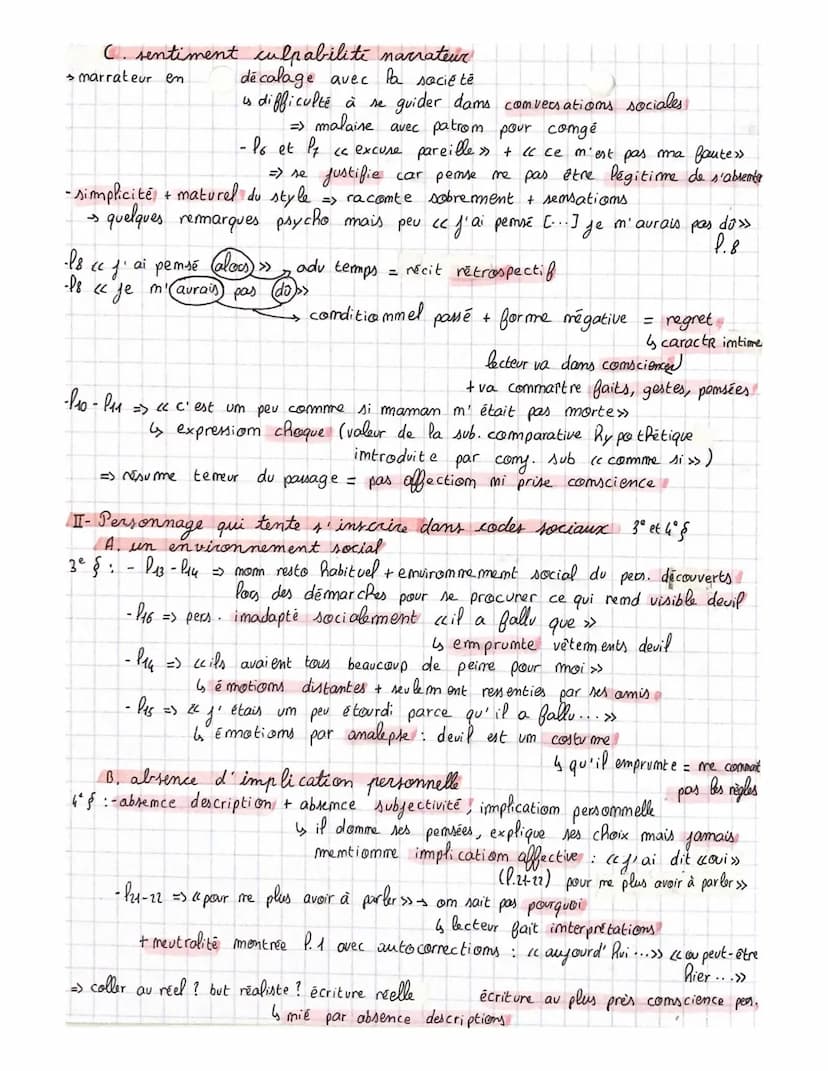 C. sentiment culpabilité narrateur
→ narrateur en décalage avec la société
↳ difficulté à se guider dans conversations sociales
=> malaise avec patron pour congé
- l6 et l7 << excuse pareille >> + << ce n'est pas ma faute >>
=> se justifie car pense ne pas être légitime de s'absenter
- simplicité + naturel du style => raconte sobrement + sensations
→ quelques remarques psycho mais peu << j'ai pensé [...] je n'aurais pas dû >>
l.8
- l8 << j'ai pensé alors >> → adv temps = récit rétrospectif
- l8 << je n'aurais pas dû >>
→ conditionnel passé + forme négative = regret
↳ caractR intime
lecteur va dans conscience
+ va connaître faits, gestes, pensées
- l10 - l11 => << c'est un peu comme si maman n'était pas morte >>
↳ expression choque (valeur de la sub. comparative hypothétique
introduite par conj. sub << comme si >>)
=> résume teneur du passage = pas affection ni prise conscience
II- Personnage qui tente s'inscrire dans codes sociaux 3e et 4e §
A. un environnement social
3e § : - l13 - l14 => nom resto habituel + environnement social du pers. découverts
lors des démarches pour se procurer ce qui rend visible deuil
- l16 => pers. inadapté socialement << il a fallu que >>
↳ emprunte vêtements deuil
- l14 => << ils avaient tous beaucoup de peine pour moi >>
↳ émotions distantes + seulement ressenties par ses amis
- l15 => << j'étais un peu étourdi parce qu'il a fallu... >>
↳ Émotions par analepse : deuil est un costume
↳ qu'il emprunte = ne connait
pas les règles
B. absence d'implication personnelle
4e § : - absence description + absence subjectivité, implication personnelle
↳ il donne ses pensées, explique ses choix mais jamais
mentionne implication affective : << j'ai dit << oui >>
(l.21-22) pour ne plus avoir à parler >>
- l21-22 => << pour ne plus avoir à parler >> → on sait pas pourquoi
↳ lecteur fait interprétations
+ neutralité montrée l.1 avec autocorrections : << aujourd'hui ... >> << ou peut-être
hier ... >>
=> coller au réel ? but réaliste ? écriture réelle écriture au plus près conscience pers.
↳ nié par absence descriptions